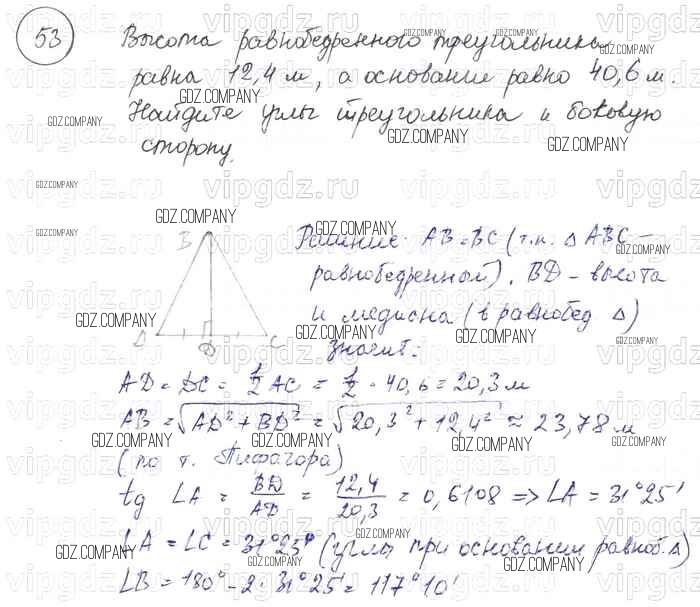 53
Высота равнобедренного треугольника
равна 12,4 м, а основание равно 40,6 м.
Найдите углы треугольника и боковую
сторону.
Решение: AB=BC (т.к. △ ABC –
равнобедренный). BD – высота
и медиана (в равнобед △)
Значит:
B
A
D
C
AD = DC = 1/2 AC = 1/2 · 40,6 = 20,3 м
AB = √AD² + BD² = √20,3² + 12,4² ≈ 23,78 м
(по т. Пифагора)
tg ∠A = BD/AD = 12,4/20,3 = 0,6108 => ∠A = 31°25'
∠A = ∠C = 31°25' (углы при основании равноб. △)
∠B = 180° - 2 · 31°25' = 117°10'
vipgdz.ru
GDZ.COMPANY